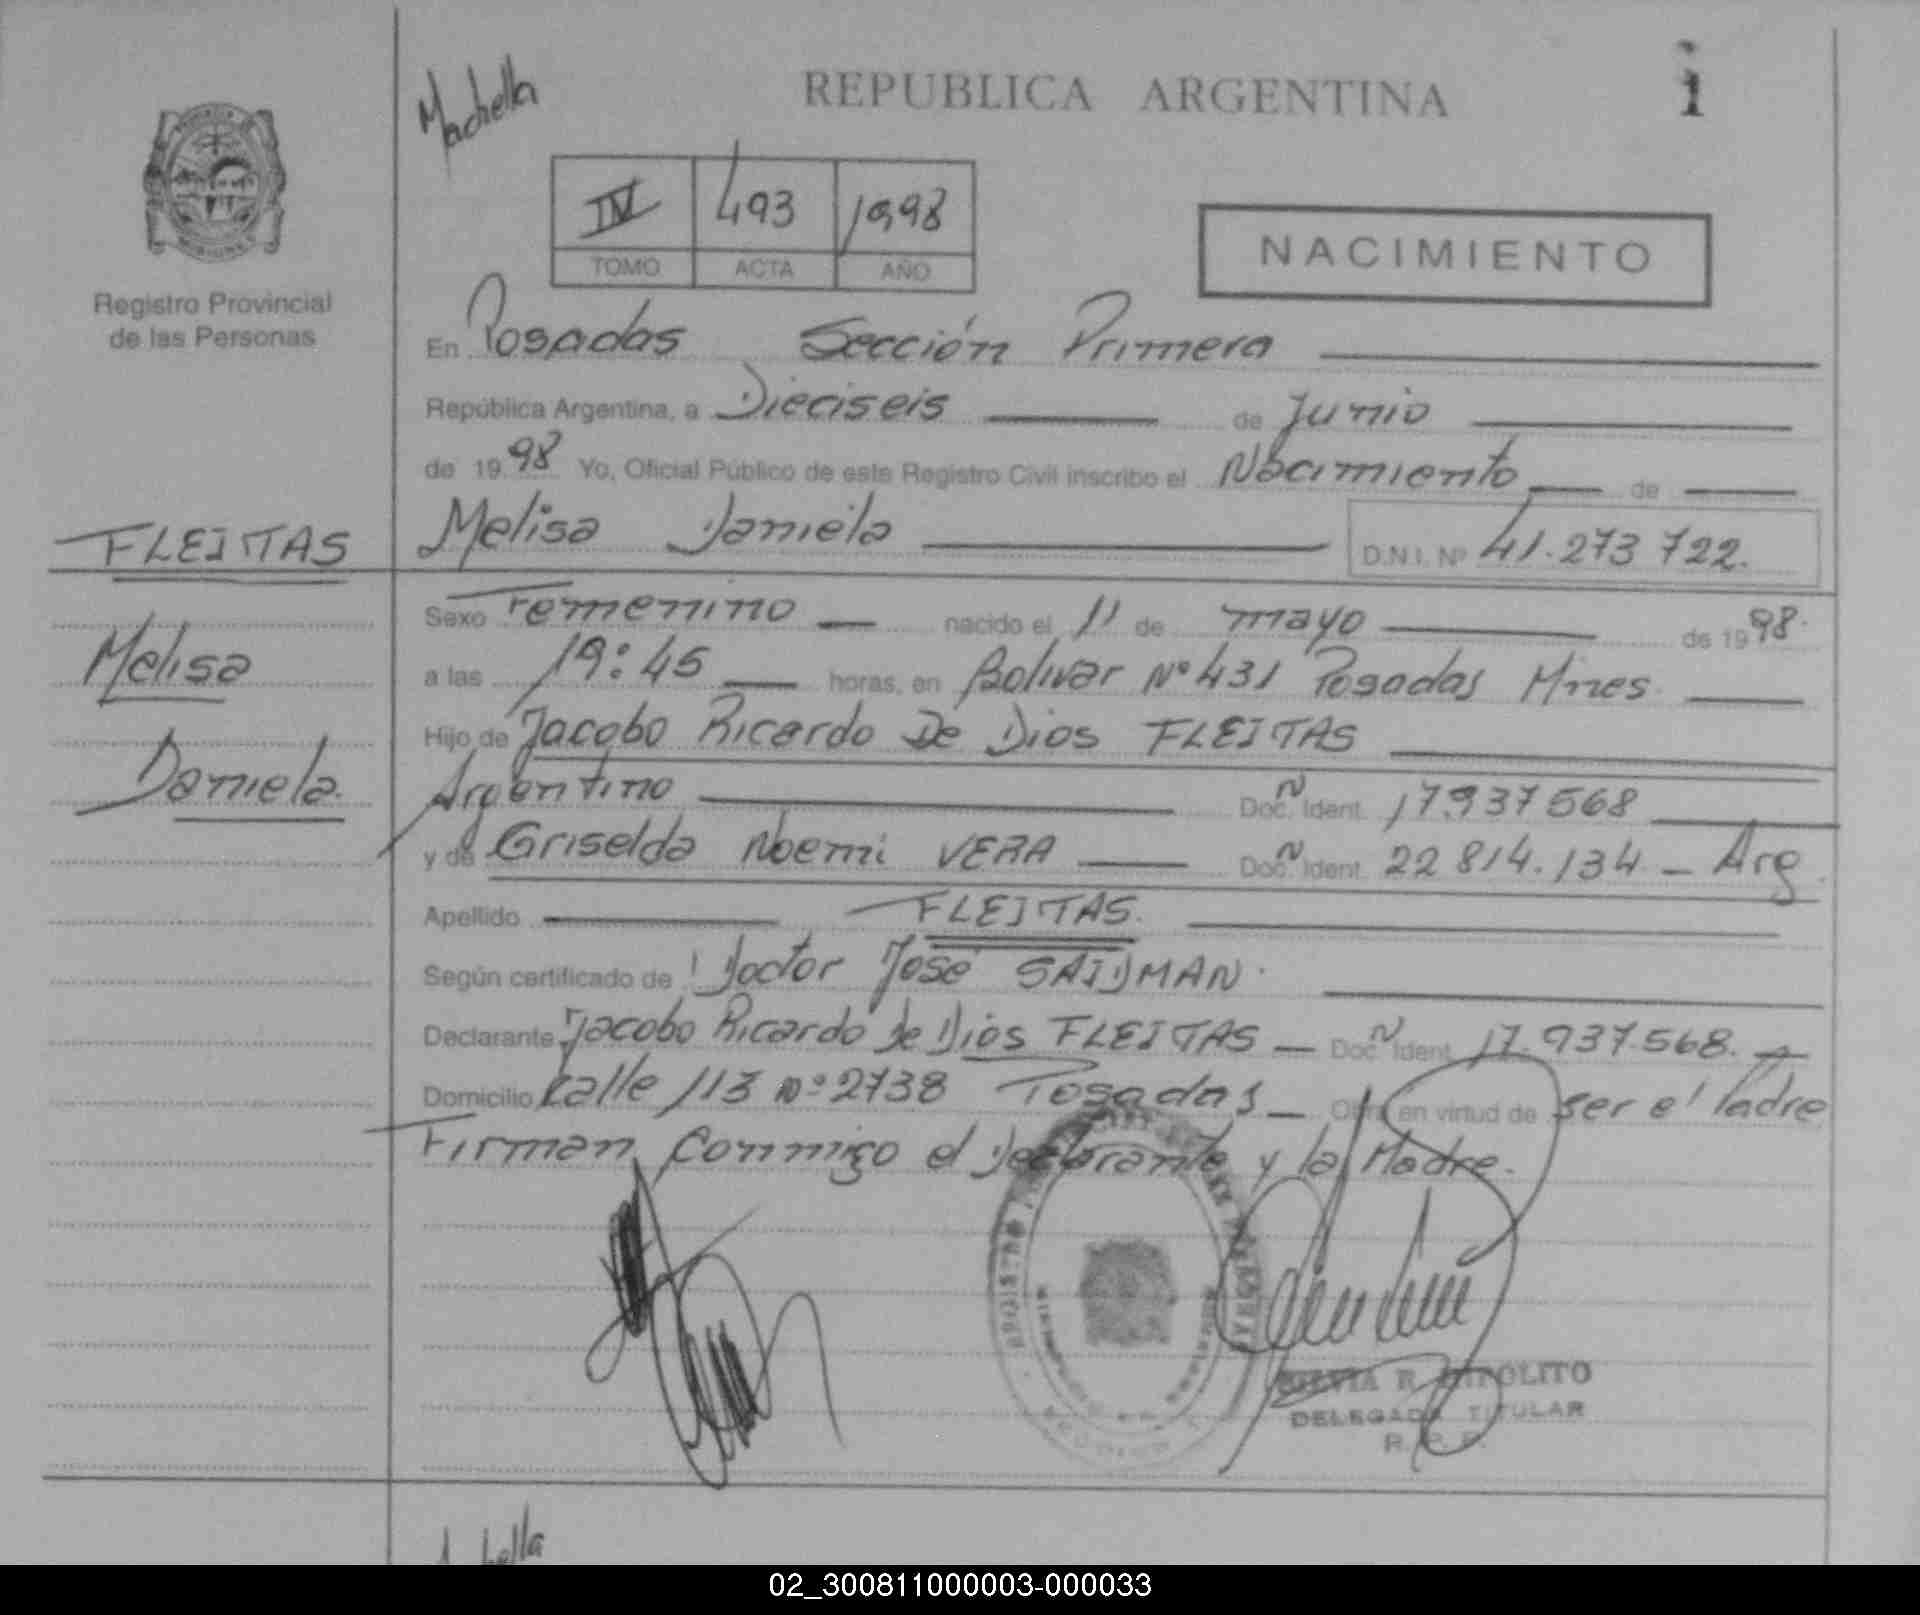 Machella
REPUBLICA ARGENTINA
1
IV 493 1998
TOMO ACTA AÑO
NACIMIENTO
Registro Provincial
de las Personas
En Posadas Sección Primera
República Argentina, a Dieciseis de Junio
de 19 98 Yo, Oficial Público de este Registro Civil inscribo el Nacimiento de
FLEITAS
Melisa Daniela D.N.I. Nº 41.273 722.
Sexo Femenino nacido el 11 de mayo de 19 98.
Melisa
a las 19:45 horas, en Bolivar Nº 431 Posadas Mnes.
Hijo de Jacobo Ricardo De Dios FLEITAS
Daniela.
Argentino Doc. N Ident. 17.937568
y de Griselda Noemi VERA Doc. N Ident. 22 814.134 - Arg.
Apellido FLEITAS.
Según certificado de Doctor José SAIDMAN.
Declarante Jacobo Ricardo De Dios FLEITAS Doc. N Ident. 17.937.568.
Domicilio Calle 113 Nº 2738 Posadas Obra en virtud de ser el Padre
Firman Conmigo el Declarante y la Madre.
SILVIA R. HIPOLITO
DELEGADA TITULAR
R. P. P.
02_300811000003-000033